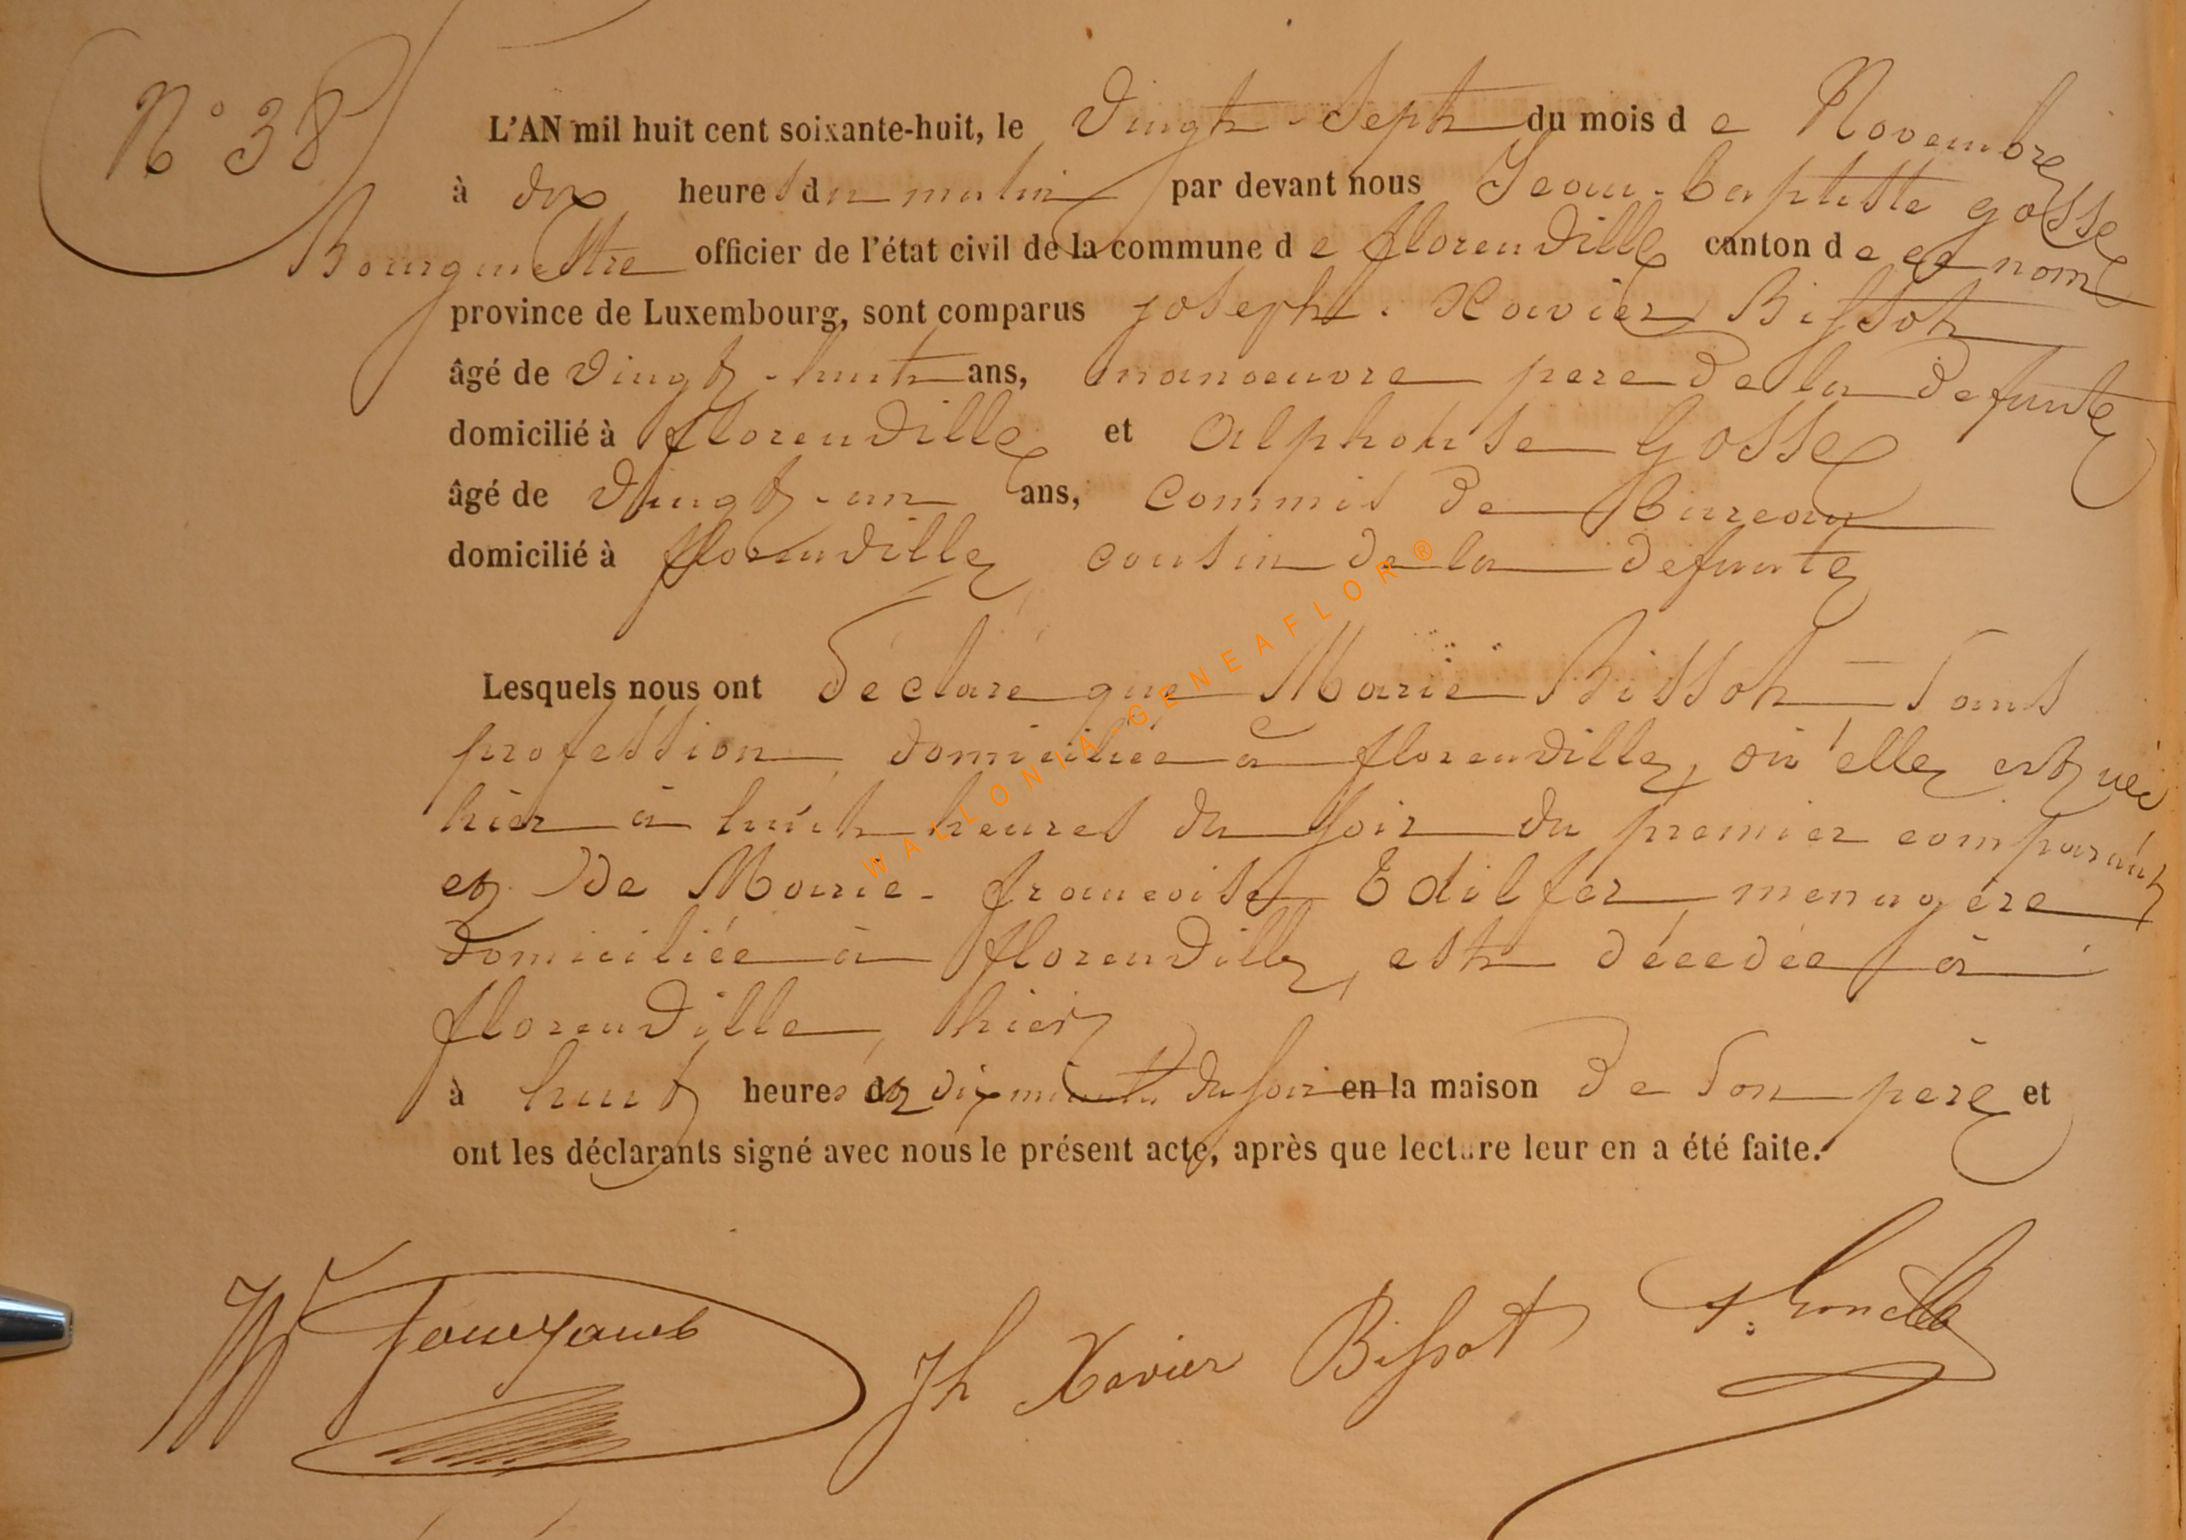 N° 38
L'AN mil huit cent soixante-huit, le Vingt-Sept du mois de Novembre
à dix heures du matin par devant nous Jean-baptiste gosse
Bourgmestre officier de l'état civil de la commune de florenville canton de ce nom
province de Luxembourg, sont comparus joseph-Xavier Bissot
âgé de Vingt-huit ans, manoeuvre pere de la defunte
domicilié à florenville et Alphonse Gosse
âgé de Vingt-un ans, Commis de bureau
domicilié à florenville cousin de la defunte
Lesquels nous ont déclaré que Marie Bissot Sans
profession, domiciliée à florenville, où elle est née
hier à huit heures du soir du premier comparant
et de Marie-françoise Edilfer menagère
domiciliée à florenville, est décedée à
florenville, hier
à huit heures et dix minutes du soir en la maison de son père et
ont les déclarants signé avec nous le présent acte, après que lecture leur en a été faite.
Jh Xavier Bissot
WALLONIA-GENEAFLOR®